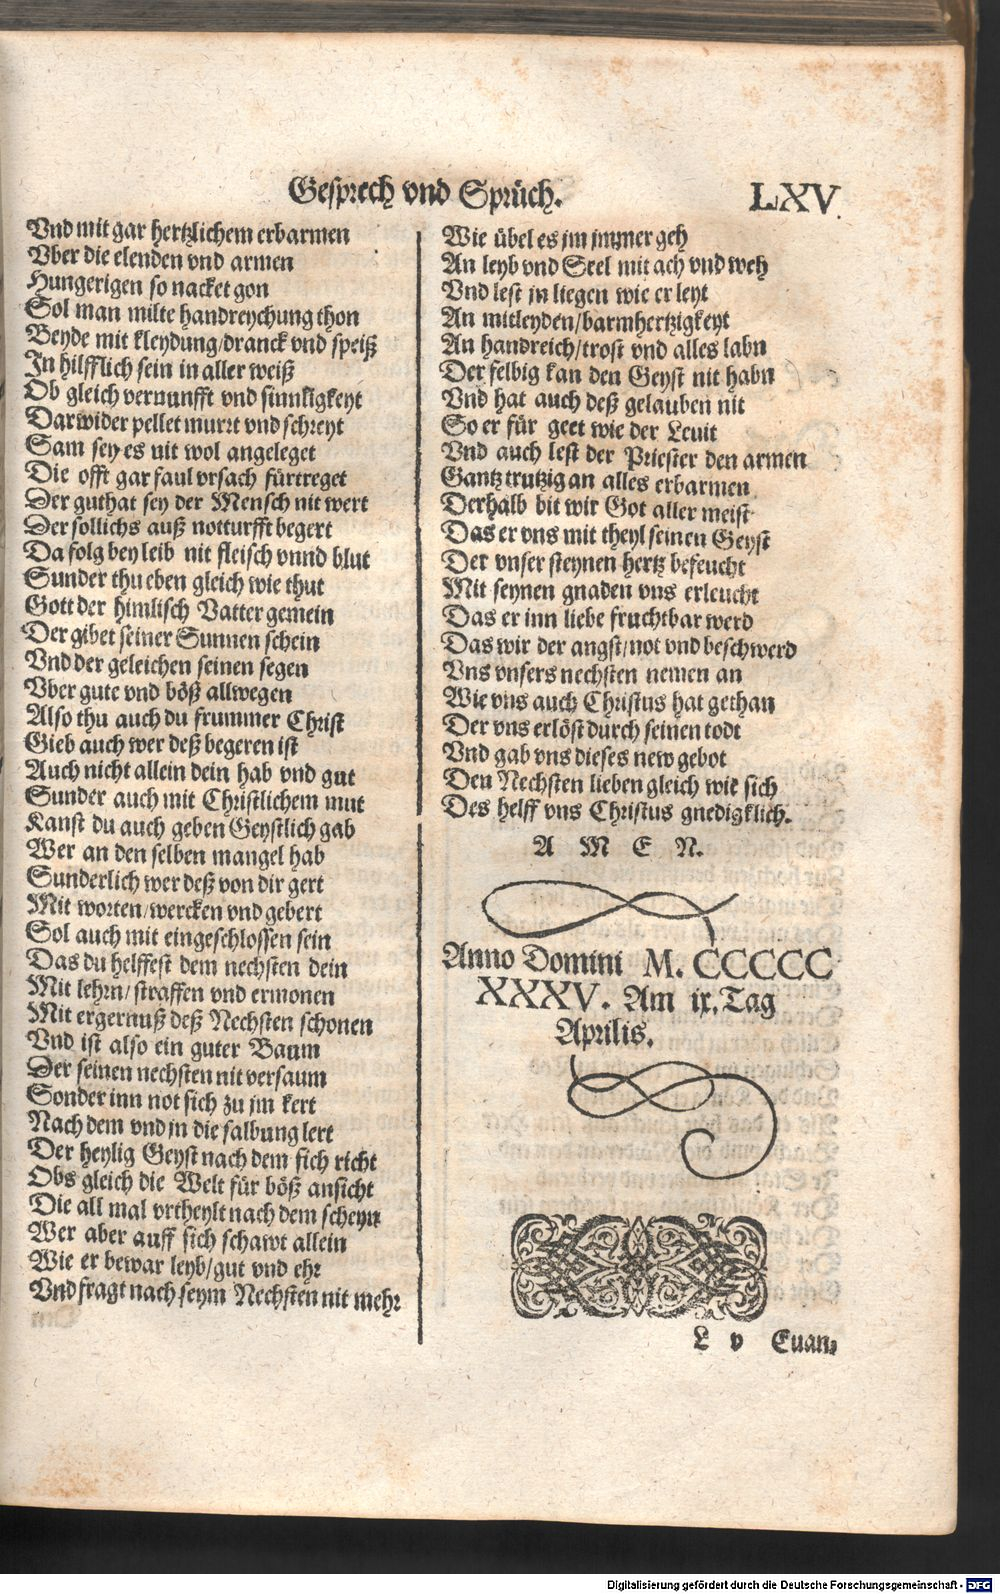 Gesprech vnd Sprüch. LXV.
Vnd mit gar hertzlichem erbarmen
Vber die elenden vnd armen
Hungerigen so nacket gon
Sol man milte handreychung thon
Beyde mit kleydung/dranck vnd speiß
In hilfflich sein in aller weiß
Ob gleich vernunfft vnd sinnligkeyt
Darwider pellet murrt vnd schreyt
Sam sey es nit wol angeleget
Die offt gar faul vrsach fürtreget
Der guthat sey der Mensch nit wert
Der sollichs auß notturfft begert
Da folg bey leib nit fleisch vnnd blut
Sunder thu eben gleich wie thut
Gott der himlisch Vatter gemein
Der gibet seiner Sunnen schein
Vnd der geleichen seinen segen
Vber gute vnd böß allwegen
Also thu auch du frummer Christ
Gieb auch wer deß begeren ist
Auch nicht allein dein hab vnd gut
Sunder auch mit Christlichem mut
Kanst du auch geben Geystlich gab
Wer an den selben mangel hab
Sunderlich wer deß von dir gert
Mit worten/wercken vnd gebert
Sol auch mit eingeschlossen sein
Das du helffest dem nechsten dein
Mit lehrn/straffen vnd ermonen
Mit ergernuß deß Nechsten schonen
Vnd ist also ein guter Baum
Der seinen nechsten nit versaum
Sonder inn not sich zu jm kert
Nach dem vnd jn die salbung lert
Der heylig Geyst nach dem sich richt
Obs gleich die Welt für böß ansicht
Die all mal vrtheylt nach dem scheyn
Wer aber auff sich schawt allein
Wie er bewar leyb/gut vnd ehr
Vnd fragt nach seym Nechsten nit mehr
Wie übel es jm jmmer geh
An leyb vnd Seel mit ach vnd weh
Vnd lest jn liegen wie er leyt
An mitleyden/barmhertzigkeyt
An handreich/trost vnd alles labn
Der selbig kan den Geyst nit habn
Vnd hat auch deß gelauben nit
So er für geet wie der Leuit
Vnd auch lest der Priester den armen
Gantz trutzig an alles erbarmen
Derhalb bit wir Got aller meist
Das er vns mit theyl seinen Geyst
Der vnser steynen hertz befeucht
Mit seynen gnaden vns erleucht
Das er inn liebe fruchtbar werd
Das wir der angst/not vnd beschwerd
Vns vnsers nechsten nemen an
Wie vns auch Christus hat gethan
Der vns erlöst durch seinen todt
Vnd gab vns dieses new gebot
Den Nechsten lieben gleich wie sich
Des helff vns Christus gnedigklich.
A M E N.
Anno Domini M. CCCCC
XXXV. Am ix. Tag
Aprilis.
L v Euan⸗
Digitalisierung gefördert durch die Deutsche Forschungsgemeinschaft - DFG